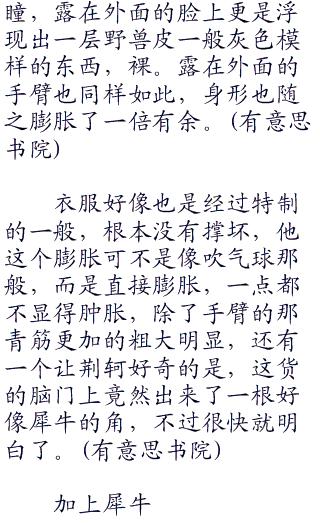 瞳，露在外面的脸上更是浮
现出一层野兽皮一般灰色模
样的东西，裸。露在外面的
手臂也同样如此，身形也随
之膨胀了一倍有余。(有意思
书院)
衣服好像也是经过特制
的一般，根本没有撑坏，他
这个膨胀可不是像吹气球那
般，而是直接膨胀，一点都
不显得肿胀，除了手臂的那
青筋更加的粗大明显，还有
一个让荆轲好奇的是，这货
的脑门上竟然出来了一根好
像犀牛的角，不过很快就明
白了。(有意思书院)
加上犀牛